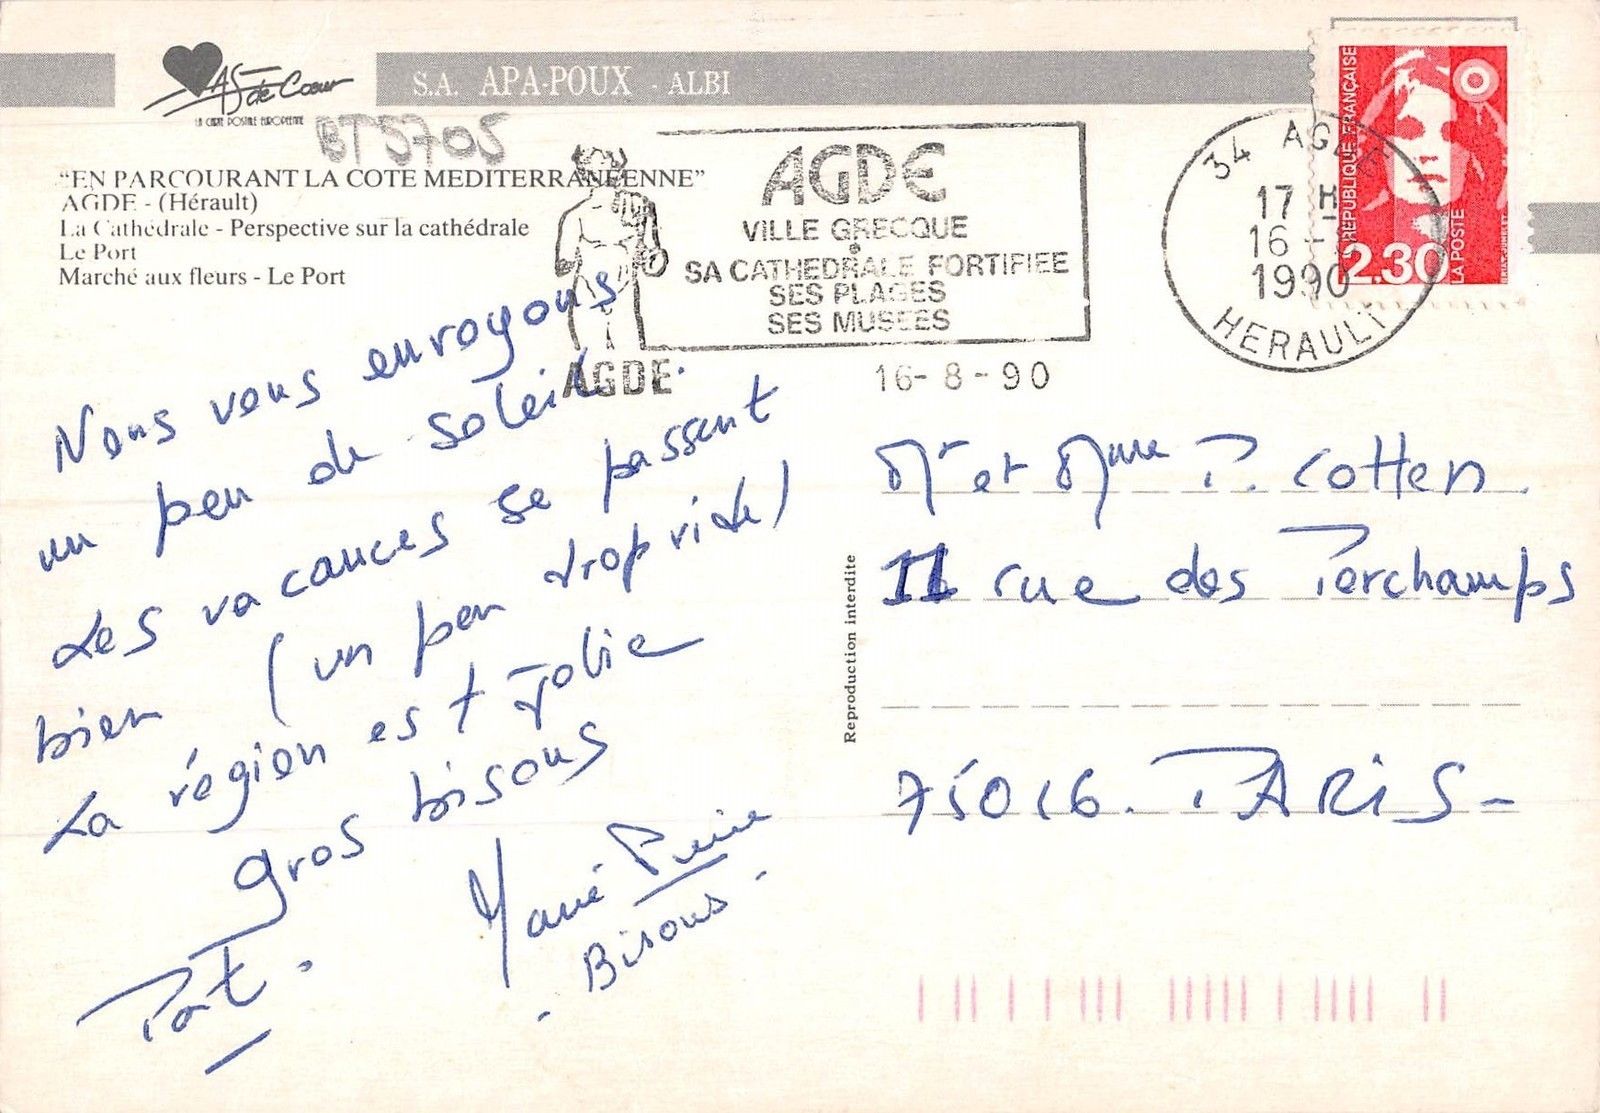 AS de Coeur
LA CARTE POSTALE EUROPEENNE
S.A. APA-POUX - ALBI
BT5705
"EN PARCOURANT LA COTE MEDITERRANEENNE"
AGDE - (Hérault)
La Cathédrale - Perspective sur la cathédrale
Le Port
Marché aux fleurs - Le Port
AGDE
VILLE GRECQUE
SA CATHEDRALE FORTIFIEE
SES PLAGES
SES MUSEES
AGDE
16-8-90
34 AGDE
17 H
16 -
1990
HERAULT
REPUBLIQUE FRANÇAISE
2.30
LA POSTE
Nous vous envoyons
un peu de soleil.
Les vacances se passent
bien (un peu trop vite)
La région est jolie
gros bisous
Pat.
Marie Pierre
- Bisous -
Reproduction interdite
Mr et Mme P. Cotten.
11 rue des Perchamps
75016. PARIS -